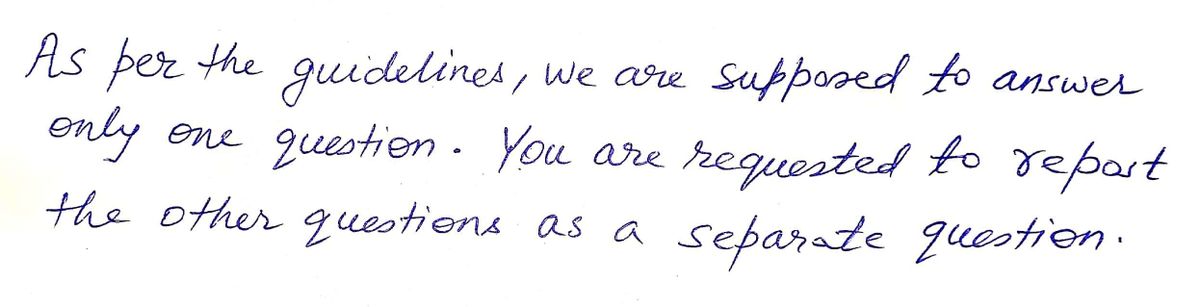 As per the guidelines, we are supposed to answer
only one question. You are requested to repost
the other questions as a separate question.